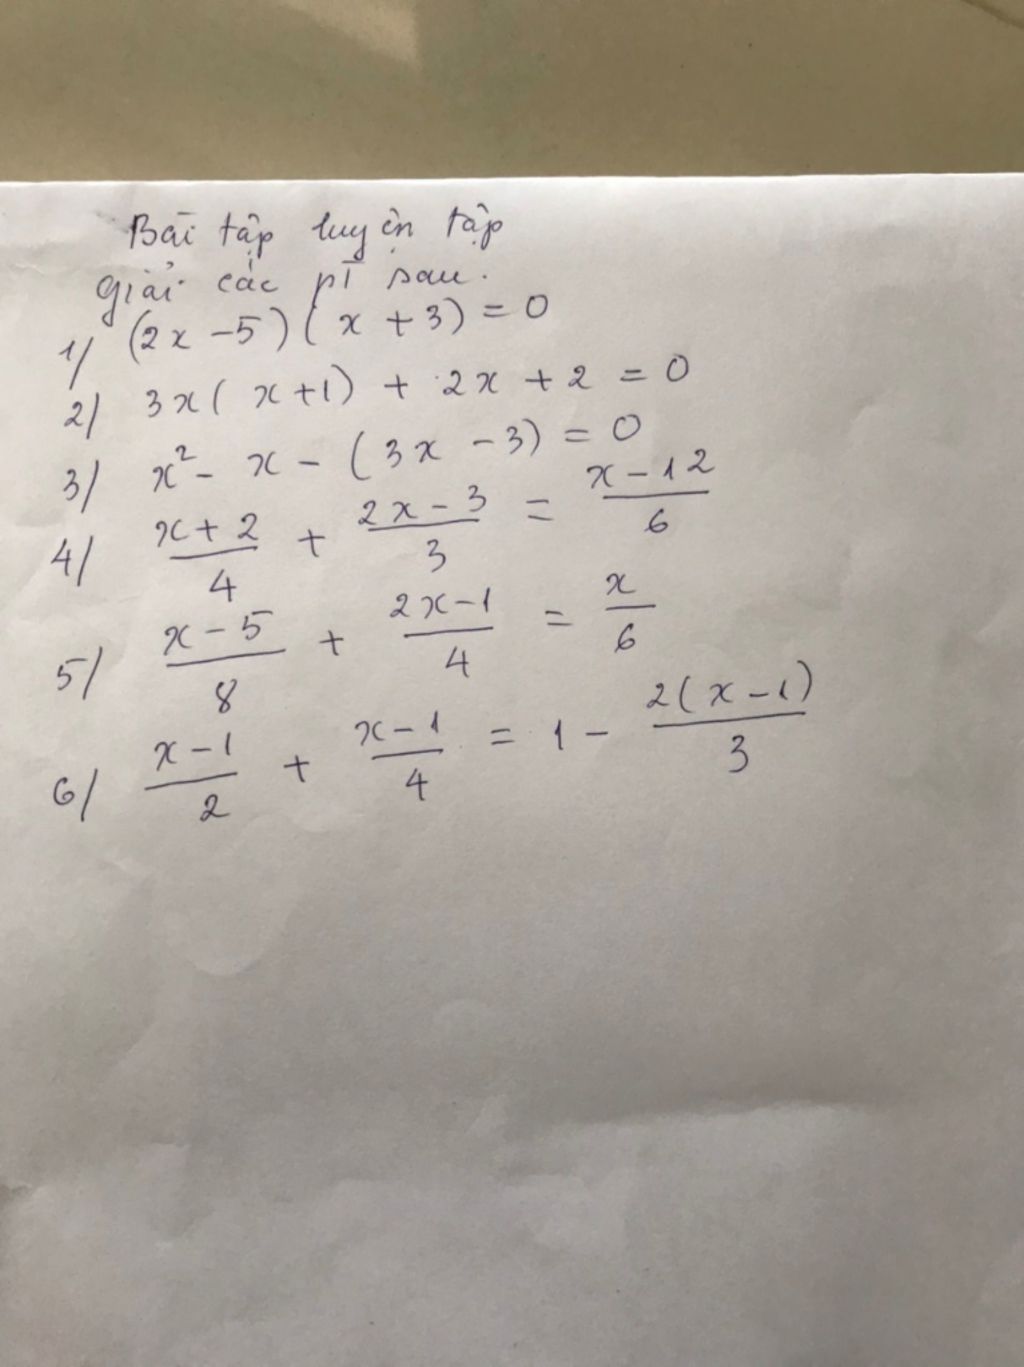 Bài tập luyện tập
giải các pT sau.
1/ (2x - 5)(x + 3) = 0
2/ 3x(x+1) + 2x + 2 = 0
3/ x² - x - (3x - 3) = 0
4/ \frac{x+2}{4} + \frac{2x-3}{3} = \frac{x-12}{6}
5/ \frac{x-5}{8} + \frac{2x-1}{4} = \frac{x}{6}
6/ \frac{x-1}{2} + \frac{x-1}{4} = 1 - \frac{2(x-1)}{3}